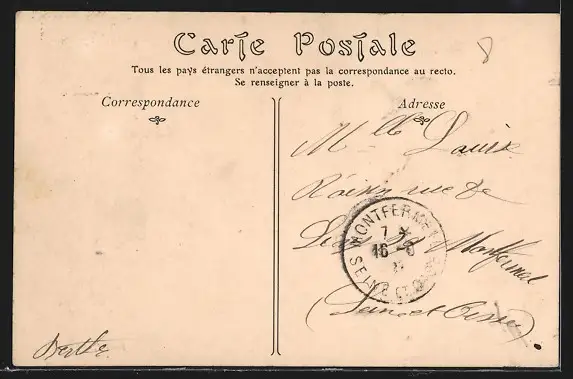 Carte Postale
Tous les pays étrangers n'acceptent pas la correspondance au recto.
Se renseigner à la poste.
Correspondance
Adresse
8
Mlle Louise
rue de
Montfermeil
(Seine et Oise)
MONTFERMEIL
7 *
16 - 6
SEINE ET OISE
Berthe